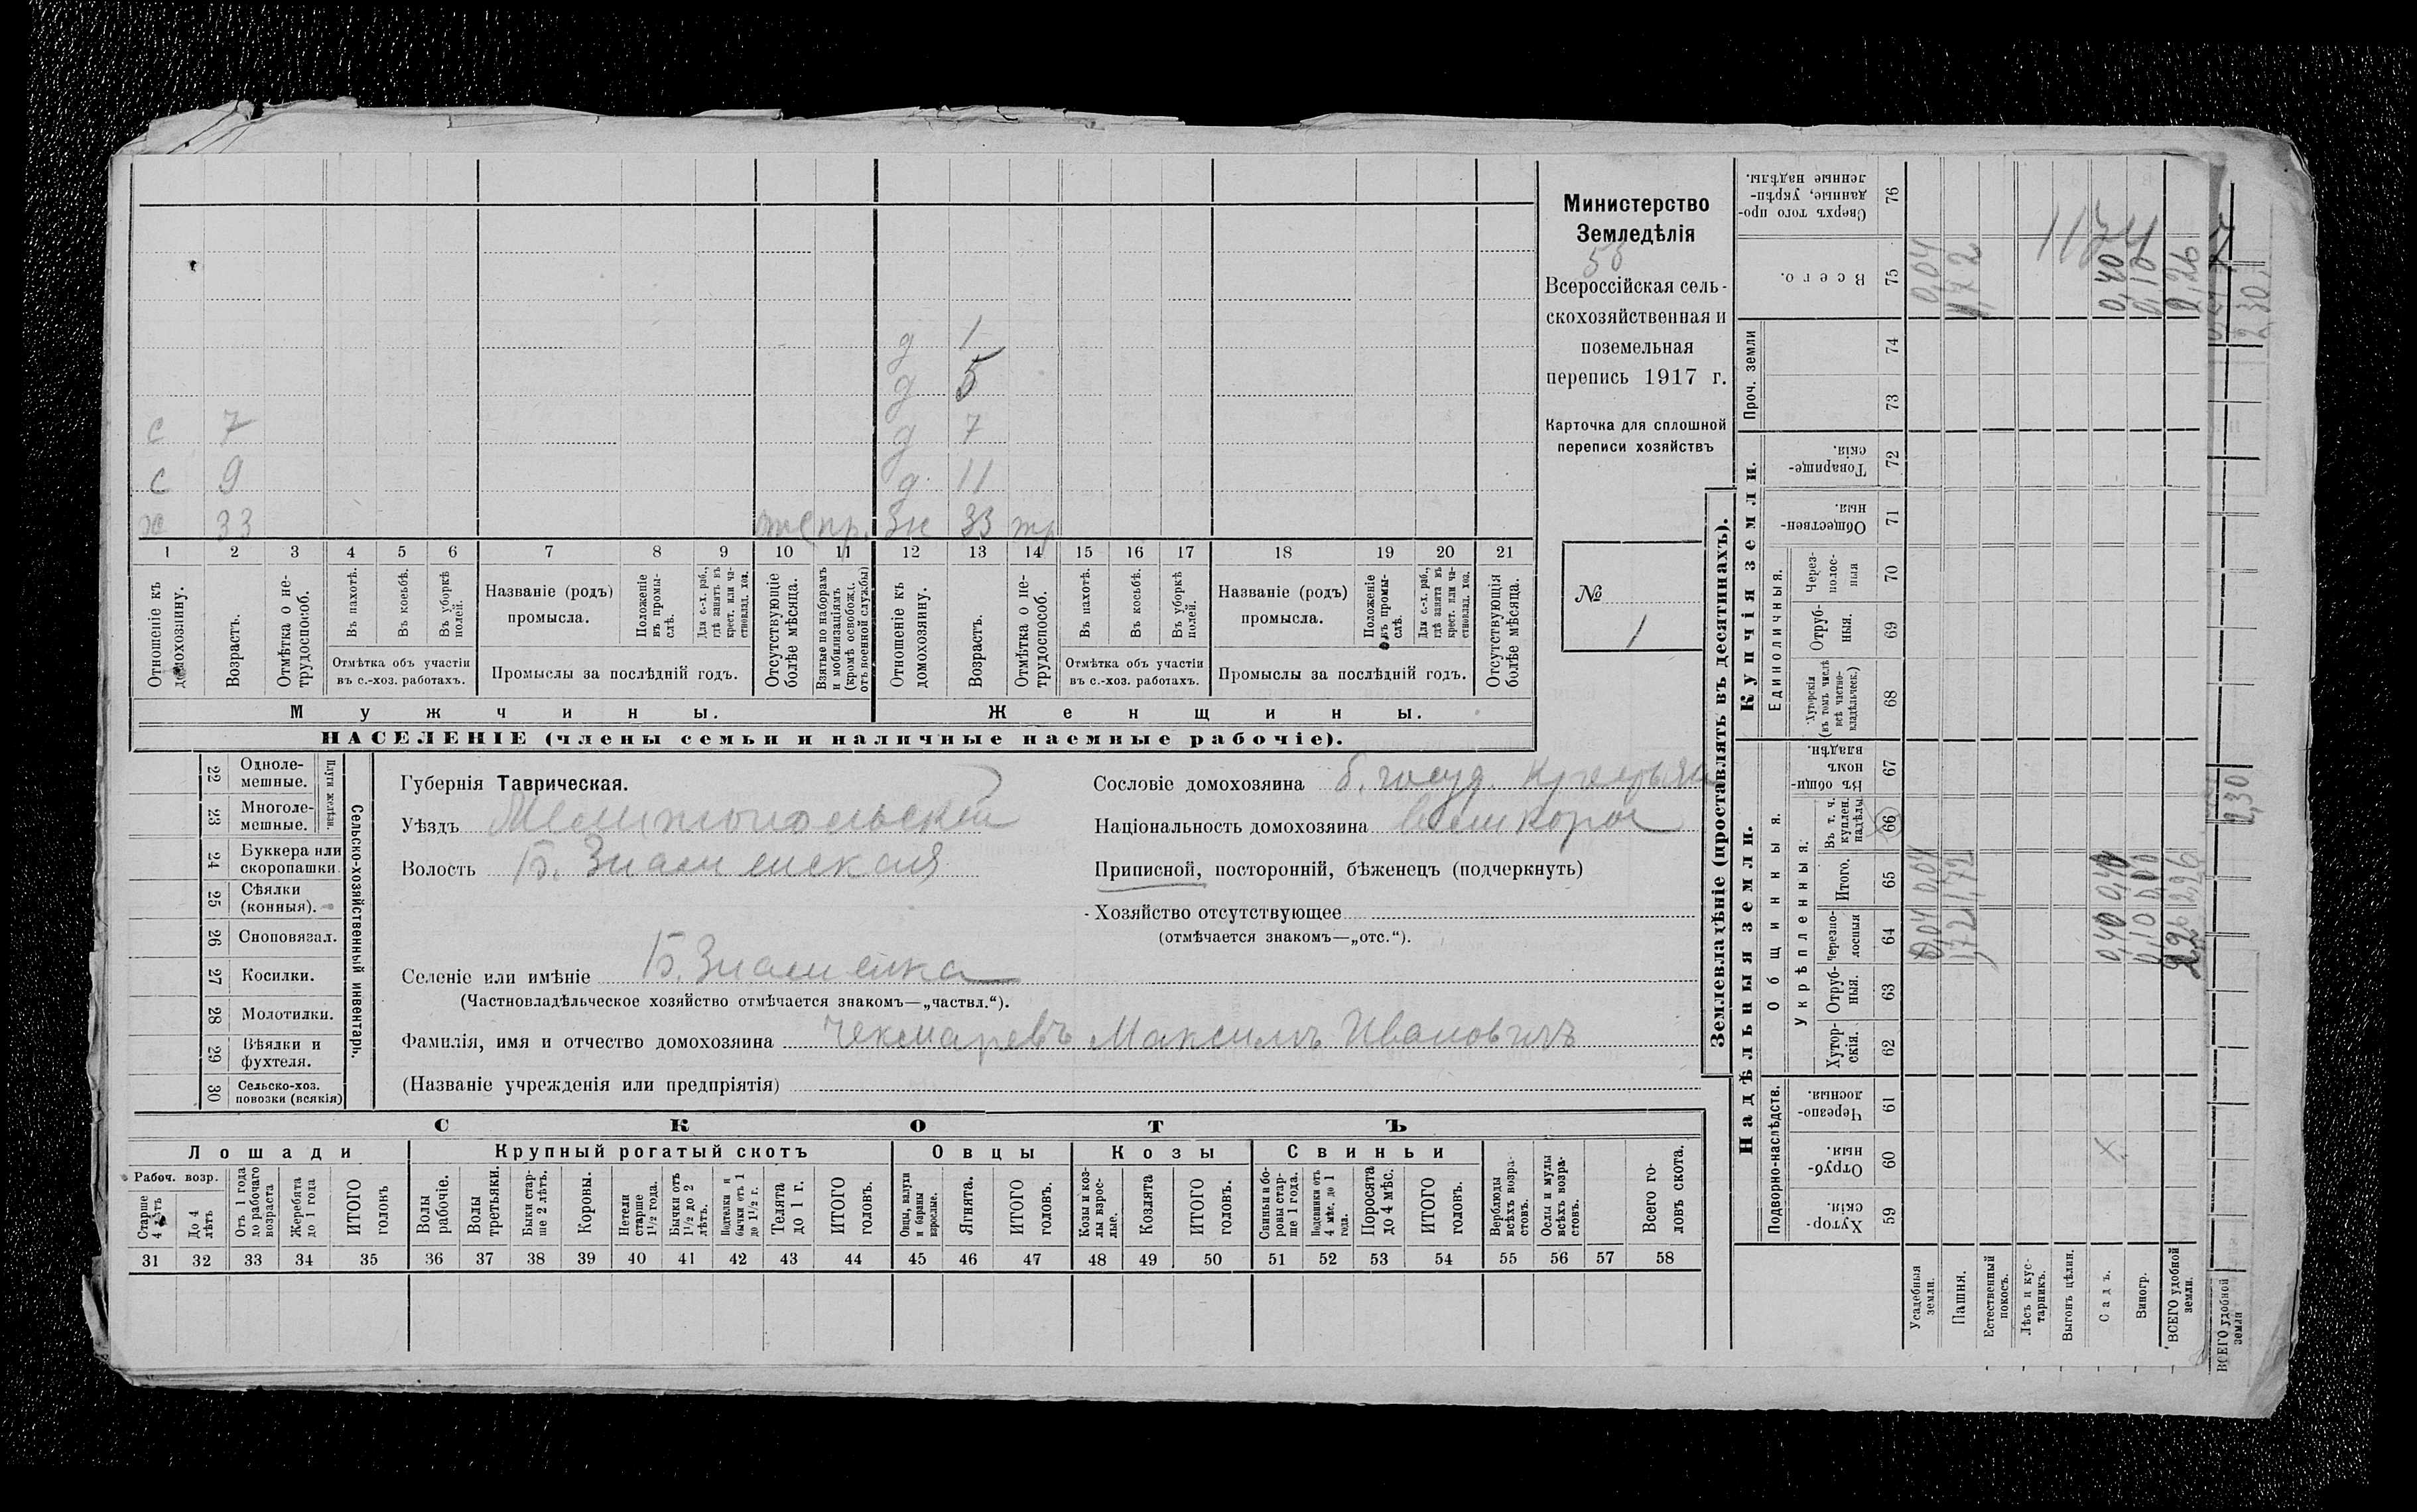 Министерство
Земледѣлія
53
Всероссійская сель-
скохозяйственная и
поземельная
перепись 1917 г.
Карточка для сплошной
переписи хозяйствъ
№
1
д 1
д 5
с 7 д 7
с 9 д 11
х 33 пр. Ж 33
1 2 3 4 5 6 7 8 9 10 11 12 13 14 15 16 17 18 19 20 21
Отношеніе къ домохозяину.
Возрастъ.
Отмѣтка о не-трудоспособ.
Въ пахотѣ.
Въ косьбѣ.
Въ уборкѣ полей.
Отмѣтка объ участіи
въ с.-хоз. работахъ.
Названіе (родъ)
промысла.
Положеніе въ промы-слѣ.
Для с.-х. раб., гдѣ занятъ въ крест. или ча-стновлад. хоз.
Промыслы за послѣдній годъ.
Отсутствующіе болѣе мѣсяца.
Взятые по наборамъ и мобилизаціямъ (кромѣ освобож. отъ военной службы)
Отношеніе къ домохозяину.
Возрастъ.
Отмѣтка о не-трудоспособ.
Въ пахотѣ.
Въ косьбѣ.
Въ уборкѣ полей.
Отмѣтка объ участіи
въ с.-хоз. работахъ.
Названіе (родъ)
промысла.
Положеніе въ промы-слѣ.
Для с.-х. раб., гдѣ занята въ крест. или ча-стновлад. хоз.
Промыслы за послѣдній годъ.
Отсутствующія болѣе мѣсяца.
Мужчины. Женщины.
НАСЕЛЕНІЕ (члены семьи и наличные наемные рабочіе).
Сельско-хозяйственный инвентарь.
Плуги желѣзн.
22 Одноле-мешные.
23 Многоле-мешные.
24 Буккера или скоропашки
25 Сѣялки (конныя).
26 Сноповязал.
27 Косилки.
28 Молотилки.
29 Вѣялки и фухтеля.
30 Сельско-хоз. повозки (всякія)
Губернія Таврическая.
Уѣздъ Мелитопольскій
Волость Б. Знаменская
Селеніе или имѣніе Б. Знаменка
(Частновладѣльческое хозяйство отмѣчается знакомъ—„частвл.“).
Фамилія, имя и отчество домохозяина Чекмаревъ Максимъ Ивановичъ
(Названіе учрежденія или предпріятія)
Сословіе домохозяина б. госуд. крестьян
Національность домохозяина великорос
Приписной, посторонній, бѣженецъ (подчеркнуть)
Хозяйство отсутствующее
(отмѣчается знакомъ—„отс.“).
СКОТЪ
Лошади Крупный рогатый скотъ Овцы Козы Свиньи
Рабоч. возр.
Старше 4 лѣтъ
До 4 лѣтъ
Отъ 1 года до рабочаго возраста
Жеребята до 1 года
ИТОГО головъ
Волы рабочіе.
Волы третьяки.
Быки стар-ше 2 лѣтъ.
Коровы.
Нетели старше 1½ года.
Бычки отъ 1½ до 2 лѣтъ.
Подтелки и бычки отъ 1 до 1½ г.
Телята до 1 г.
ИТОГО головъ.
Овцы, валухи и бараны взрослые.
Ягнята.
ИТОГО головъ.
Козы и коз-лы взрос-лые.
Козлята
ИТОГО головъ.
Свиньи и бо-ровы стар-ше 1 года.
Подсвинки отъ 4 мѣс. до 1 года.
Поросята до 4 мѣс.
ИТОГО головъ.
Верблюды всѣхъ возра-стовъ.
Ослы и мулы всѣхъ возра-стовъ.
Всего го-ловъ скота.
31 32 33 34 35 36 37 38 39 40 41 42 43 44 45 46 47 48 49 50 51 52 53 54 55 56 57 58
Землевладѣніе (проставлять въ десятинахъ).
Надѣльныя земли. Купчія земли. Проч. земли
Подворно-наслѣдств.
Общинныя.
Укрѣпленныя.
Единоличныя.
Хутор-скія. 59
Отруб-ныя. 60
Черезпо-лосныя. 61
Хутор-скія. 62
Отруб-ныя. 63
Черезпо-лосныя 64
Итого. 65
Въ т. ч. куплен. надѣлы. 66
Въ общи-номъ владѣн. 67
Хуторскія (въ томъ числѣ всѣ частно-владѣльческ.) 68
Отруб-ныя. 69
Через-полос-ныя 70
Обществен-ныя. 71
Товарище-скія. 72
73
74
Всего. 75
Сверхъ того про-данные, укрѣп-ленные надѣлы. 76
Усадебныя земли. 0,04 0,04 0,04
Пашня. 1,72 1,72 1,72
Естественный покосъ.
Лѣсъ и кус-тарникъ.
Выгонъ цѣлин.
Садъ. 0,40 0,40 0,40
Виногр. 0,10 0,10
ВСЕГО удобной земли. 2,26 2,26 2,26
ВСЕГО удобной земли 2,30 2,30